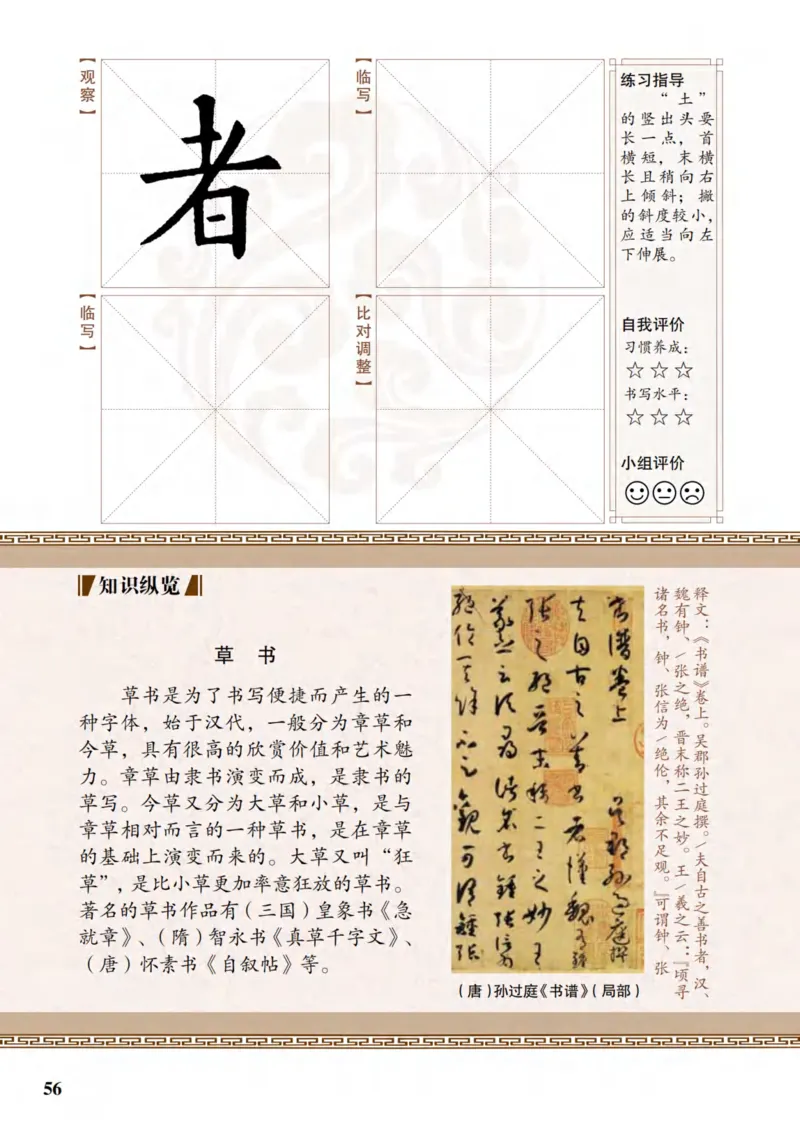 【观察】
者
【临写】
【临写】
【比对调整】
练习指导
“土”
的竖出头要
长一点，首
横短，末横
长且稍向右
上倾斜；撇
的斜度较小，
应适当向左
下伸展。
自我评价
习惯养成：
☆☆☆
书写水平：
☆☆☆
小组评价
知识纵览
草 书
草书是为了书写便捷而产生的一
种字体，始于汉代，一般分为章草和
今草，具有很高的欣赏价值和艺术魅
力。章草由隶书演变而成，是隶书的
草写。今草又分为大草和小草，是与
章草相对而言的一种草书，是在章草
的基础上演变而来的。大草又叫“狂
草”，是比小草更加率意狂放的草书。
著名的草书作品有（三国）皇象书《急
就章》、（隋）智永书《真草千字文》、
（唐）怀素书《自叙帖》等。
书谱卷上 吴郡孙过庭撰
夫自古之善书者汉魏有钟
张之绝晋末称二王之妙王
羲之云顷寻诸名书钟张信为
绝伦其余不足观可谓钟张
（唐）孙过庭《书谱》（局部）
释文：《书谱》卷上。吴郡孙过庭撰。/夫自古之善书者，汉、
魏有钟、/张之绝，晋末称二王之妙。王/羲之云：『顷寻
诸名书，钟、张信为/绝伦，其余不足观。』可谓钟、张
56